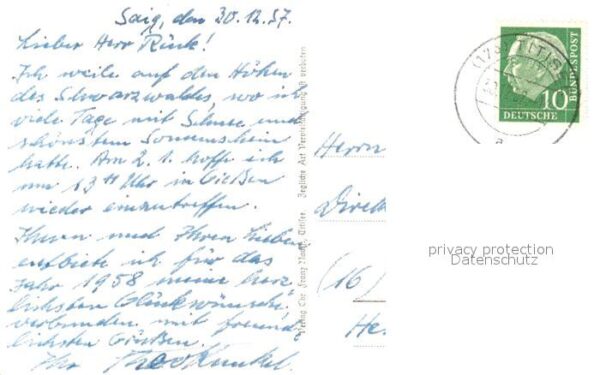 Saig, den 30.12.57.
Lieber Herr Rück!
Ich weile auf den Höhen
des Schwarzwaldes, wo ich
viele Tage mit Schnee und
schönstem Sonnenschein
hatte. Am 2.1. hoffe ich
um 13 Uhr in Gießen
wieder einzutreffen.
Ihnen und Ihren Lieben
ich für das
Jahr 1958 meine herz-
lichsten Glückwünsche,
verbunden mit freund-
lichsten Grüßen.
Ihr Theo Kunkel.
Jegliche Art Vervielfältigung ist verboten
Verlag Titisee
Herrn
Direk
(16)
He
TITIS
10
DEUTSCHE
BUNDESPOST
privacy protection
Datenschutz